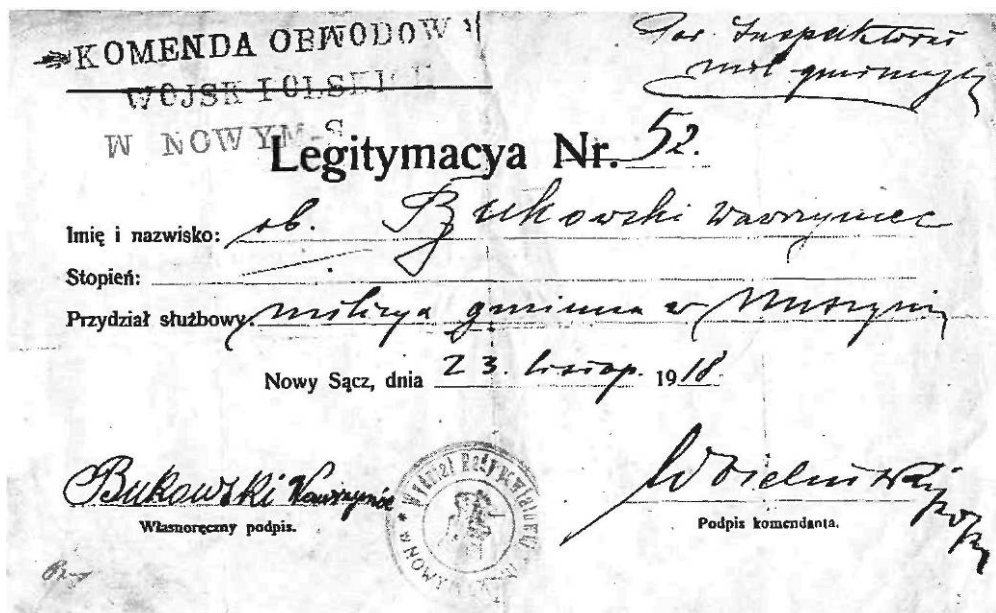 KOMENDA OBWODOW
WOJSK POLSKI
W NOWYM-S
Inspektorat
mil. gminnych
Legitymacya Nr. 52.
Imię i nazwisko: ob. Bukowski Wawrzyniec
Stopień:
Przydział służbowy: milicya gminna w Muszynie
Nowy Sącz, dnia 23. listop. 1918.
Bukowski Wawrzyniec
Własnoręczny podpis.
Wydział Rady Powiatowej
Podpis komendanta.